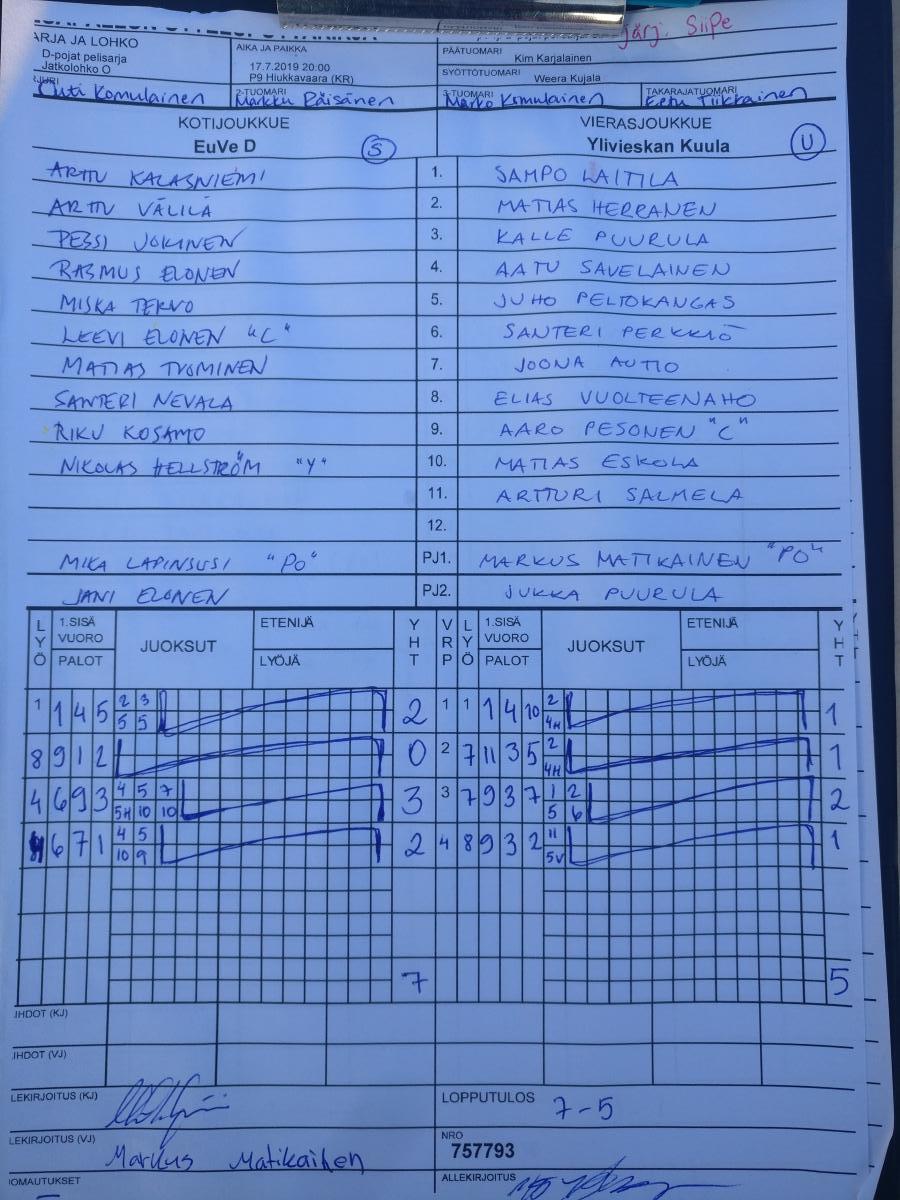 järj. SiiPe
ARJA JA LOHKO
D-pojat pelisarja
Jatkolohko O
AIKA JA PAIKKA
17.7.2019 20:00
P9 Hiukkavaara (KR)
PÄÄTUOMARI
Kim Karjalainen
SYÖTTÖTUOMARI
Weera Kujala
Outi Komulainen
2-TUOMARI
Markku Räisänen
3-TUOMARI
Marko Komulainen
TAKARAJATUOMARI
Eetu Tiikkainen
KOTIJOUKKUE
EuVe D S
VIERASJOUKKUE
Ylivieskan Kuula U
ARTTU KALASNIEMI 1. SAMPO LAITILA
ARTTU VÄLILÄ 2. MATIAS HERRANEN
PESSI JOKINEN 3. KALLE PUURULA
RASMUS ELONEN 4. AATU SAVELAINEN
MISKA TERVO 5. JUHO PELTOKANGAS
LEEVI ELONEN "C" 6. SANTERI PERKKIÖ
MATIAS TUOMINEN 7. JOONA AUTIO
SANTERI NEVALA 8. ELIAS VUOLTEENAHO
RIKU KOSAMO 9. AARO PESONEN "C"
NIKOLAS HELLSTRÖM "Y" 10. MATIAS ESKOLA
11. ARTTURI SALMELA
12.
MIKA LAPINSUSI "PO" PJ1. MARKUS MATIKAINEN "PO"
JANI ELONEN PJ2. JUKKA PUURULA
LYÖ 1.SISÄ VUORO PALOT JUOKSUT ETENIJÄ LYÖJÄ YHT VRP LYÖ 1.SISÄ VUORO PALOT JUOKSUT ETENIJÄ LYÖJÄ YHT
1 1 4 5 2 3 2 1 1 1 4 10 2 1
5 5 4H
8 9 1 2 0 2 7 11 3 5 2 1
4H
4 6 9 3 4 5 7 3 3 7 9 3 7 1 2 2
5H 10 10 5 6
6 7 1 4 5 2 4 8 9 3 2 11 1
10 9 5V
7 5
IHDOT (KJ)
IHDOT (VJ)
LEKIRJOITUS (KJ)
LOPPUTULOS 7-5
LEKIRJOITUS (VJ)
Markus Matikainen
NRO
757793
IOMAUTUKSET
ALLEKIRJOITUS